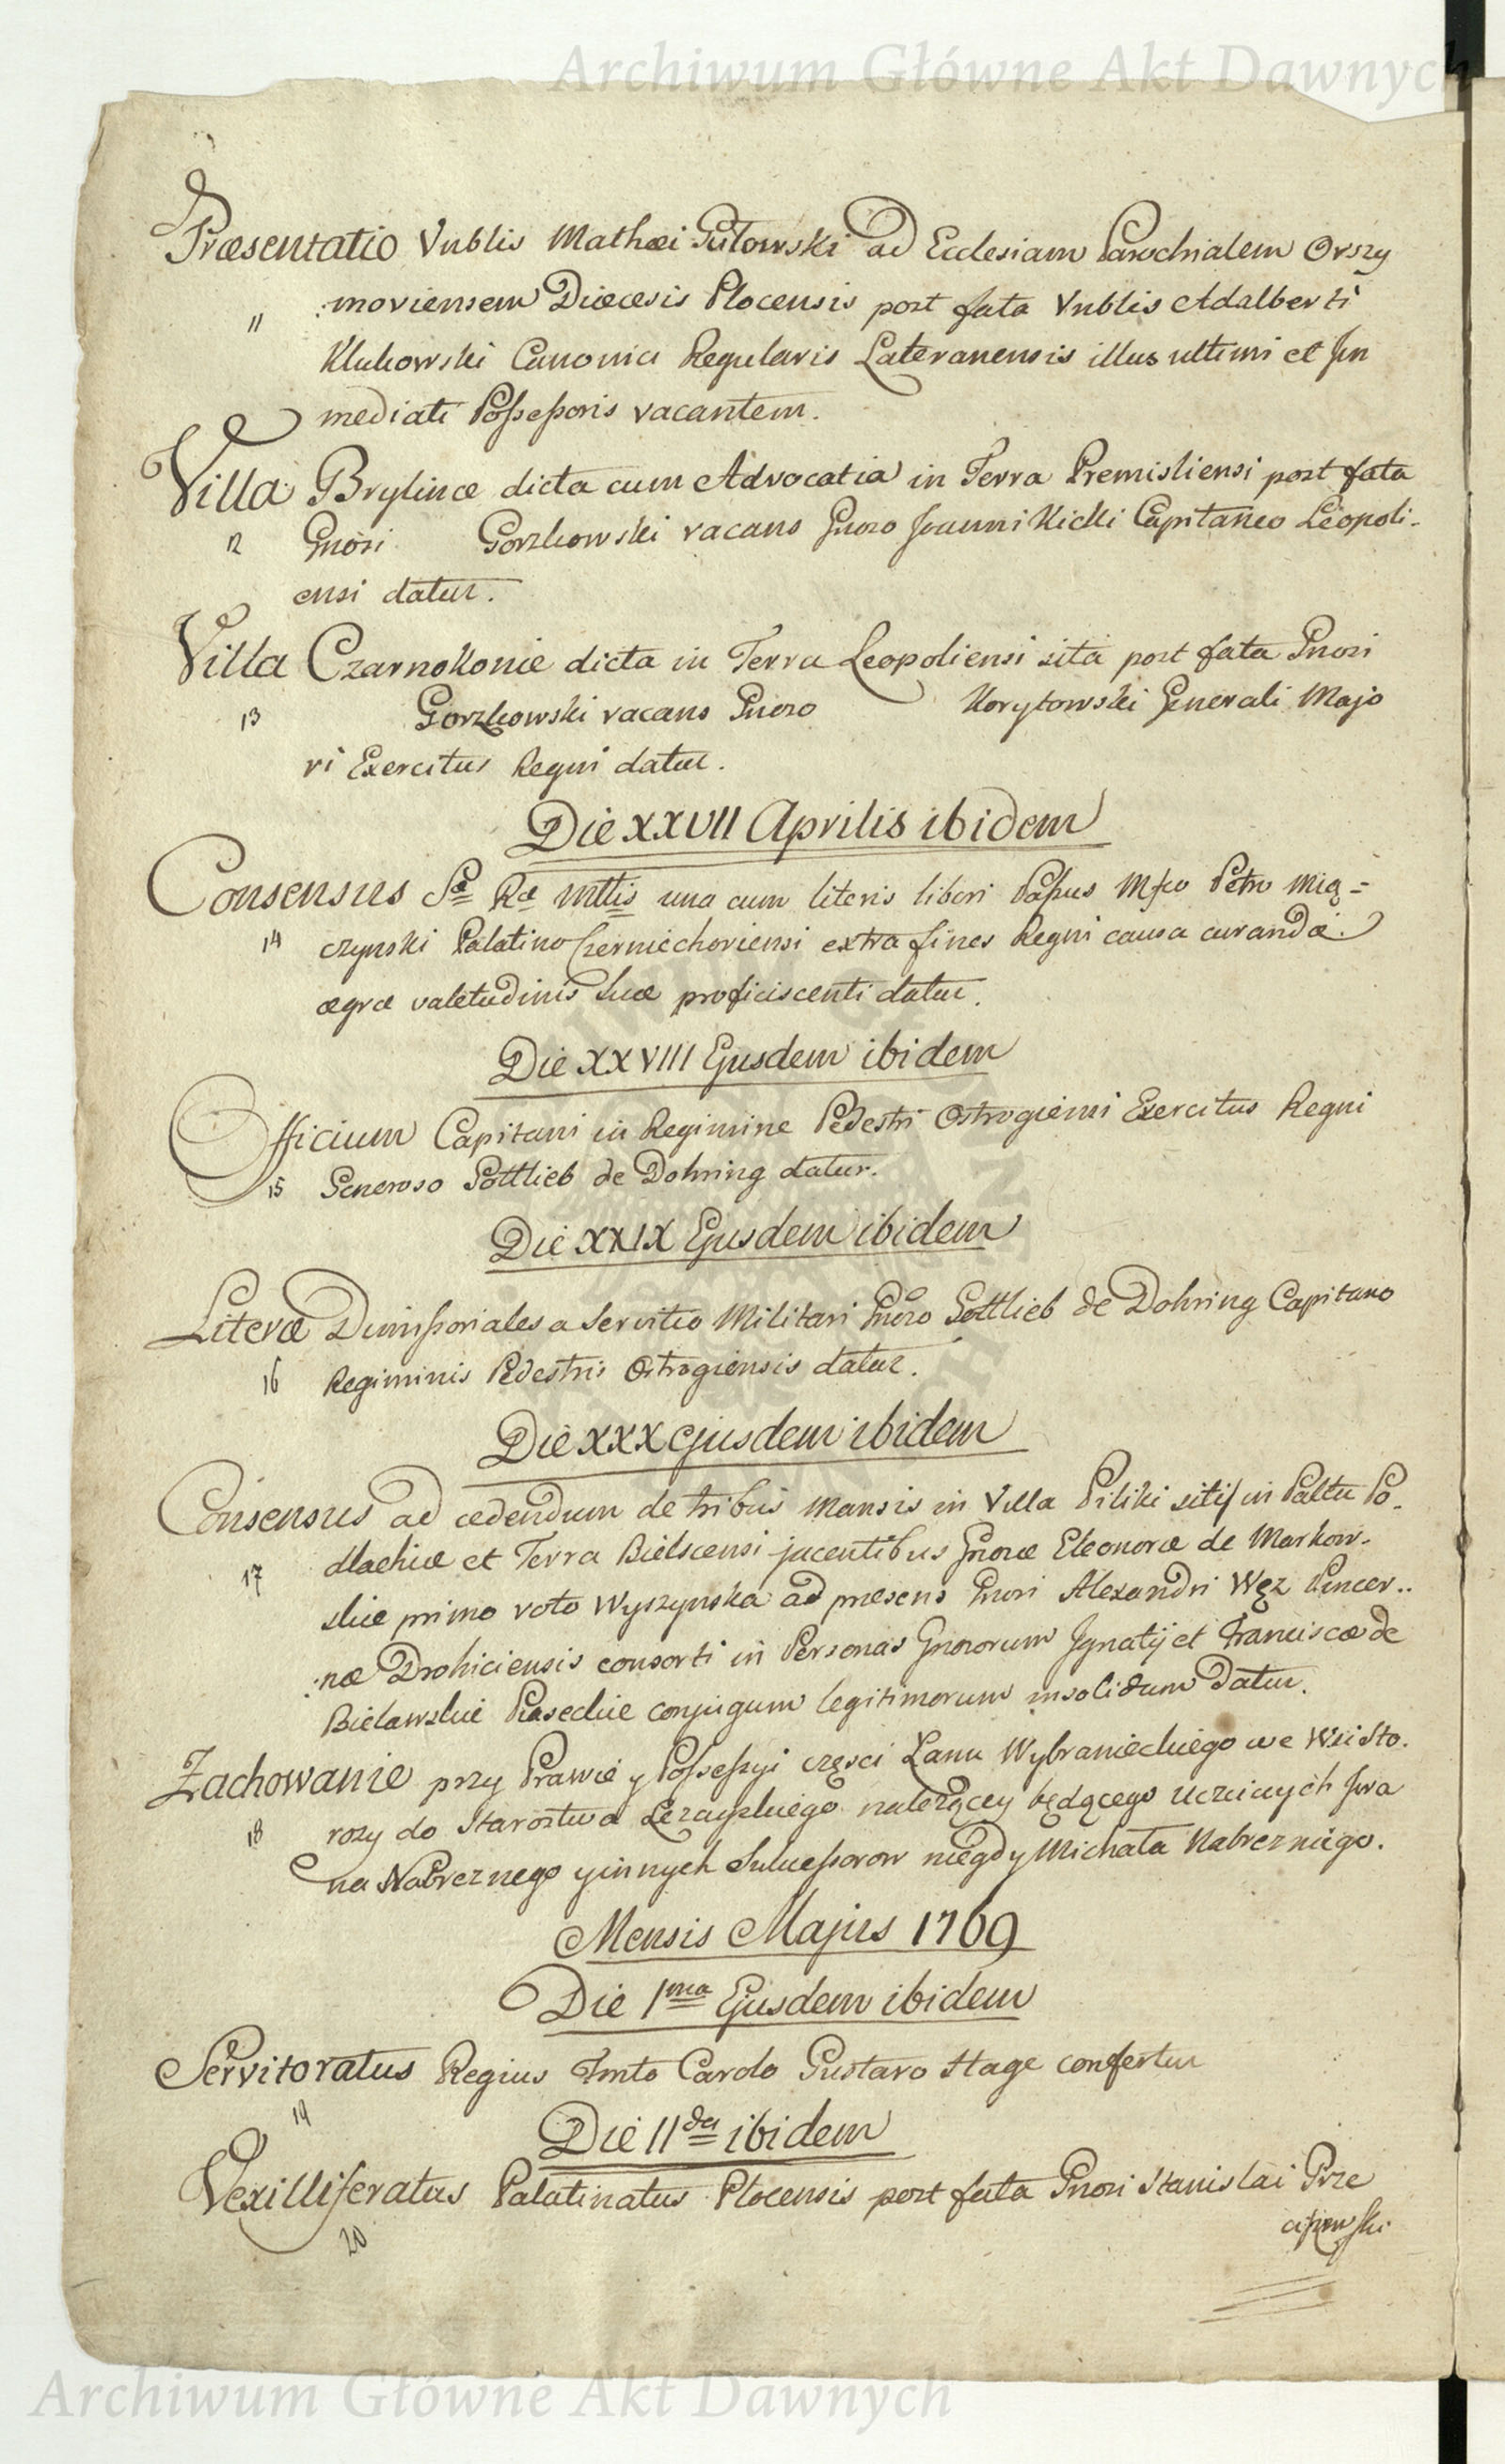 Archiwum Główne Akt Dawnych
Præsentatio Vnblis Mathæi Gutowski ad Ecclesiam Parochialem Orszy
11 moviensem Diœcesis Plocensis post fata Vnblis Adalberti
Klukowski Canonici Regularis Lateranensis illus ultimi et Im
mediati Possessoris vacantem.
Villa Brylince dicta cum Advocatia in Terra Premisliensi post fata
12 Gnosi Gorzkowski vacans Gnoso Joanni Kicki Capitaneo Leopoli-
ensi datur.
Villa Czarnokonie dicta in Terra Leopoliensi sita post fata Gnosi
13 Gorzkowski vacans Gnoso Korytowski Generali Majo
ri Exercitus Regni datur.
Die XXVII Aprilis ibidem
Consensus Sæ Ræ Mttis una cum literis liberi Passus Mfco Petro Mią=
14 czynski Palatino Czerniechoviensi extra fines Regni causa curandæ
ægræ valetudinis suæ proficiscenti datur.
Die XXVIII Ejusdem ibidem
Officium Capitani in Regimine Pedestri Ostrogiensi Exercitus Regni
15 Generoso Gottlieb de Dohring datur.
Die XXIX Ejusdem ibidem
Literæ Dimissoriales a Servitio Militari Gnoso Gottlieb de Dohring Capitano
16 Regiminis Pedestris Ostrogiensis datur.
Die XXX ejusdem ibidem
Consensus ad cedendum de tribus mansis in Villa Piliki sitis in Paltu Po-
17 dlachiæ et Terra Bielscensi jacentibus Gnosæ Eleonoræ de Markow-
skie primo voto Wyszynska ad præsens Gnosi Alexandri Węz Pincer..
:næ Drohiciensis consorti in Personas Gnosorum Ignatij et Franciscæ de
Bielawskie Piaseckie conjugum legitimorum insolidum Datur.
Zachowanie przy Prawie y Possessyi częsci Łanu Wybranieckiego we Wsi Sto.
18 rozy do Starostwa Lezayskiego nalezącey będącego Uczciwych Jwa
na Nabreznego y innych Sukcessorow niegdy Michała Nabreznego.
Mensis Majus 1769
Die 1ma Ejusdem ibidem
Servitoratus Regius Fmto Carolo Gustavo Stage confertur
19
Die IIda ibidem
Vexilliferatus Palatinatus Plocensis post fata Gnosi Stanislai Prze
20 ciszewski
Archiwum Główne Akt Dawnych